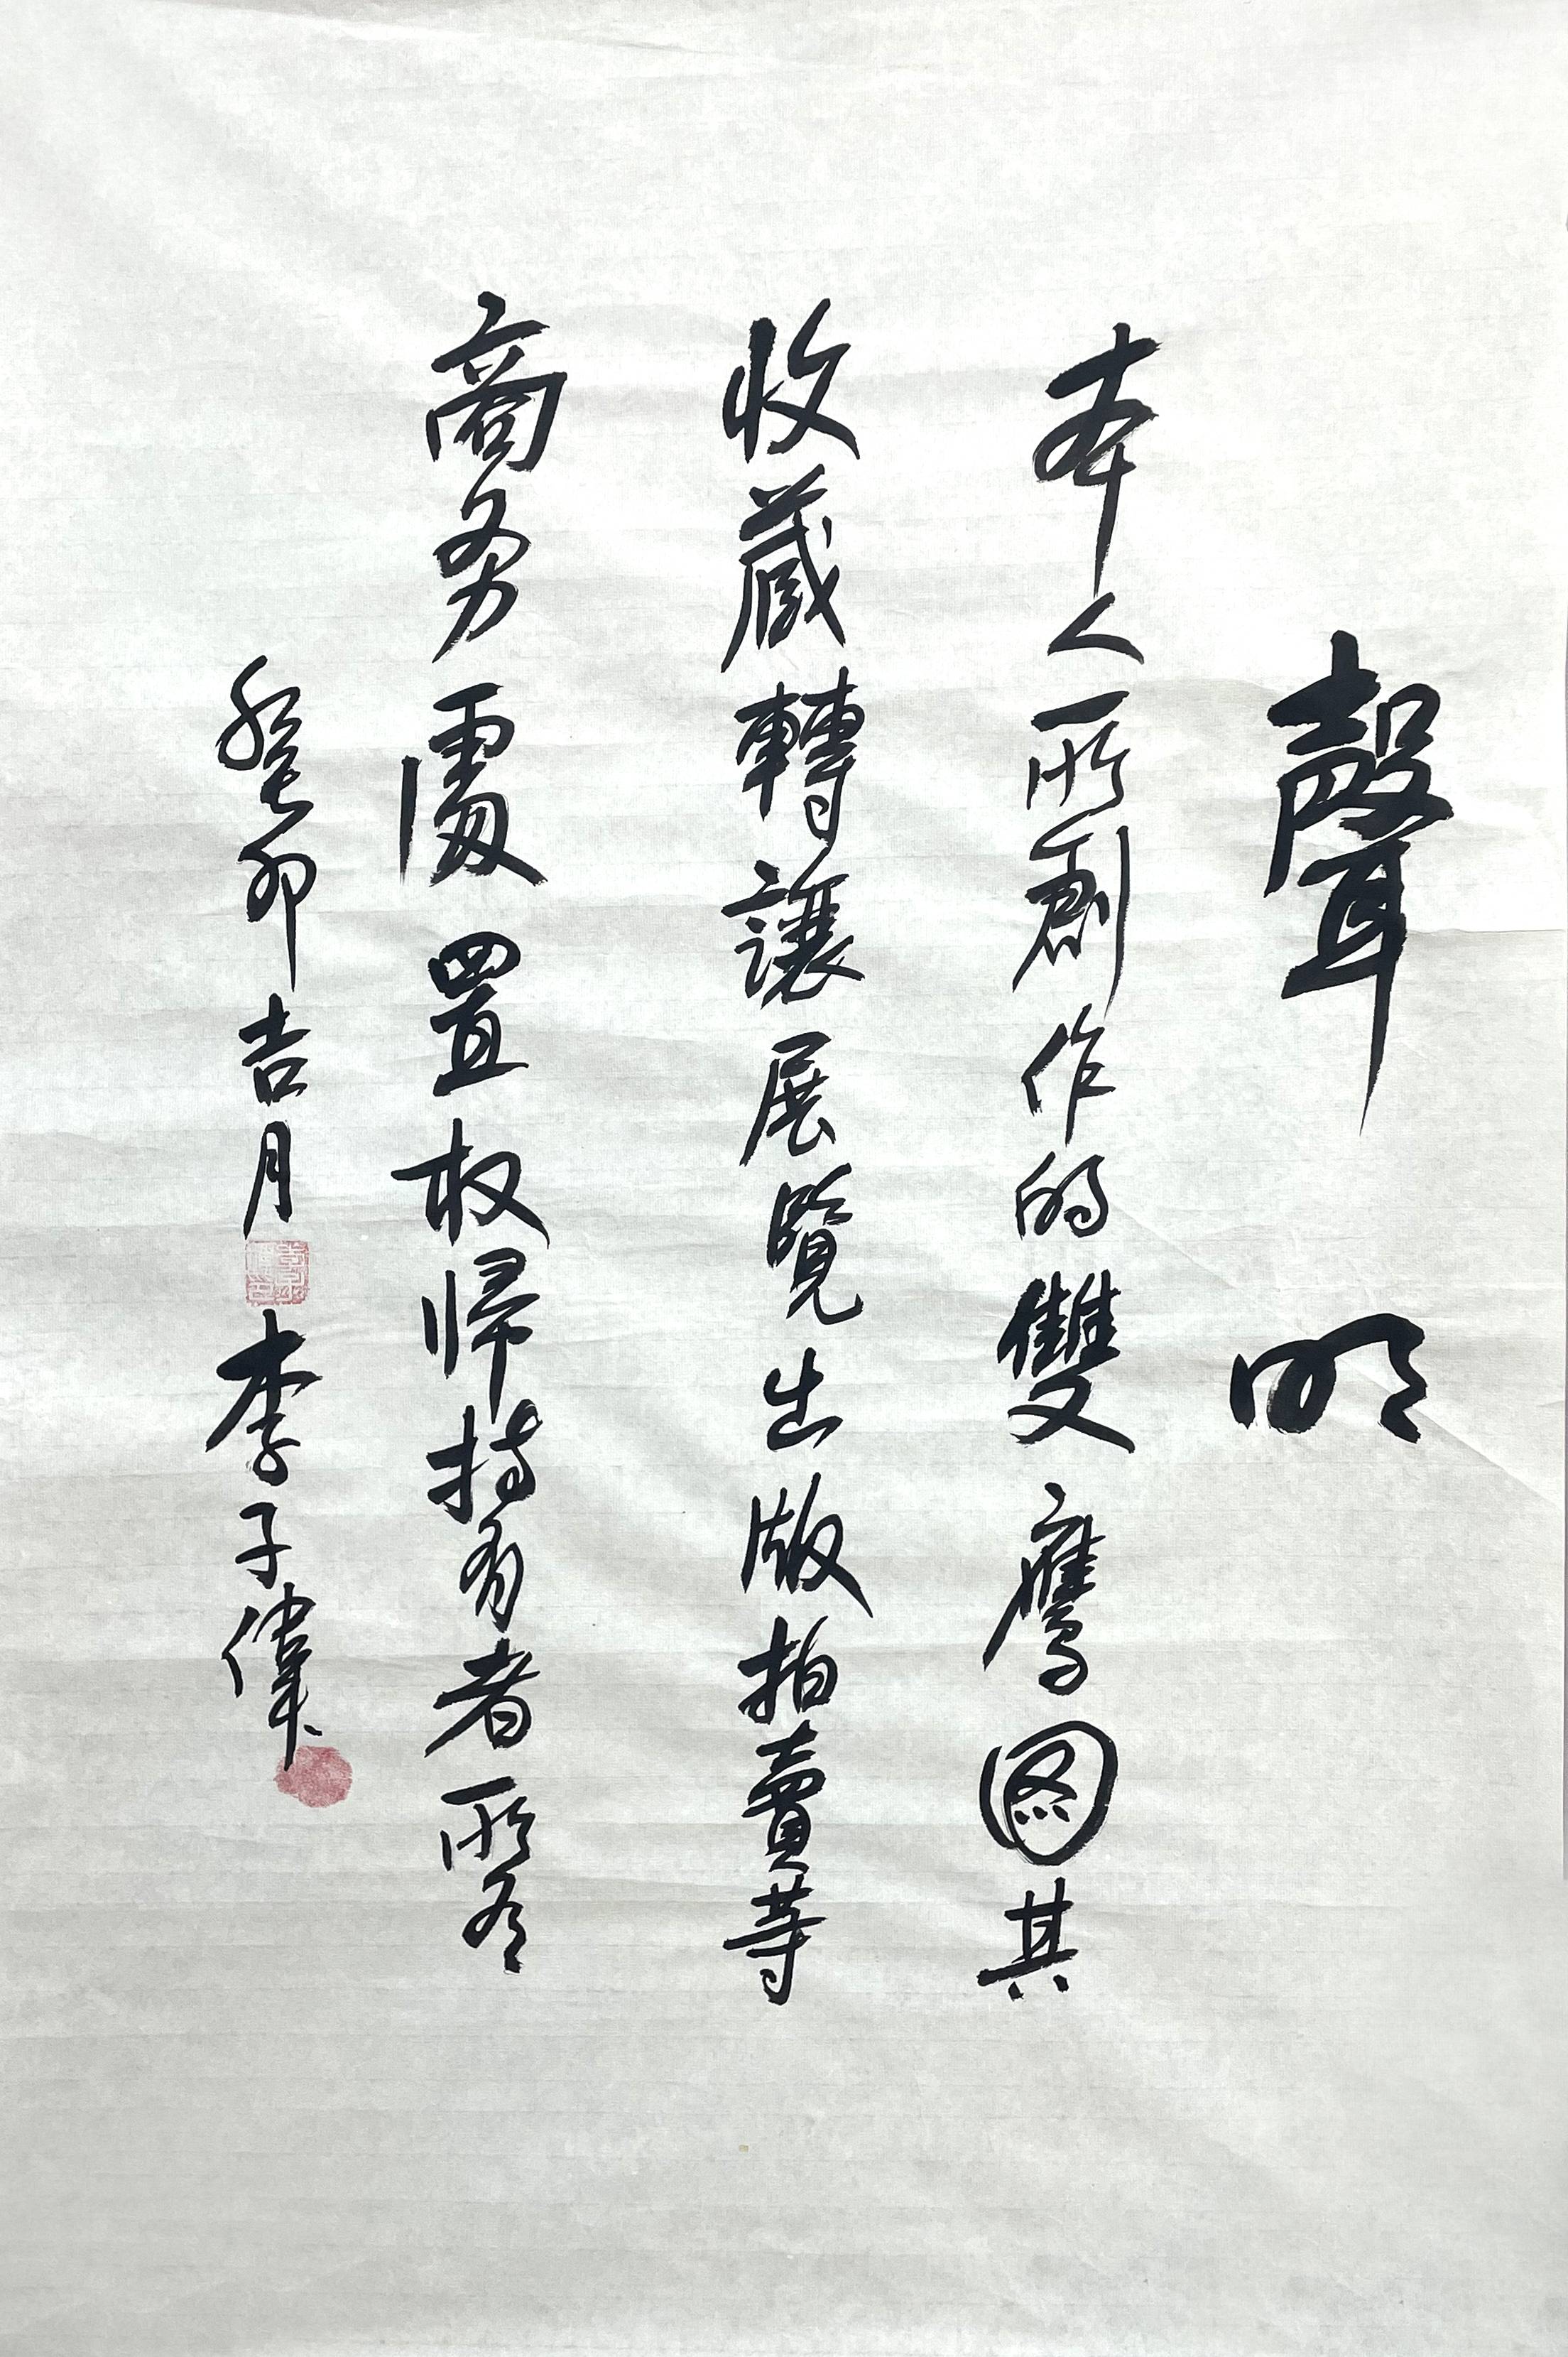 聲明
本人所創作的雙鷹图其
收藏轉讓展覽出版拍賣等
商务處置权帰持有者所有
癸卯吉月
李子偉